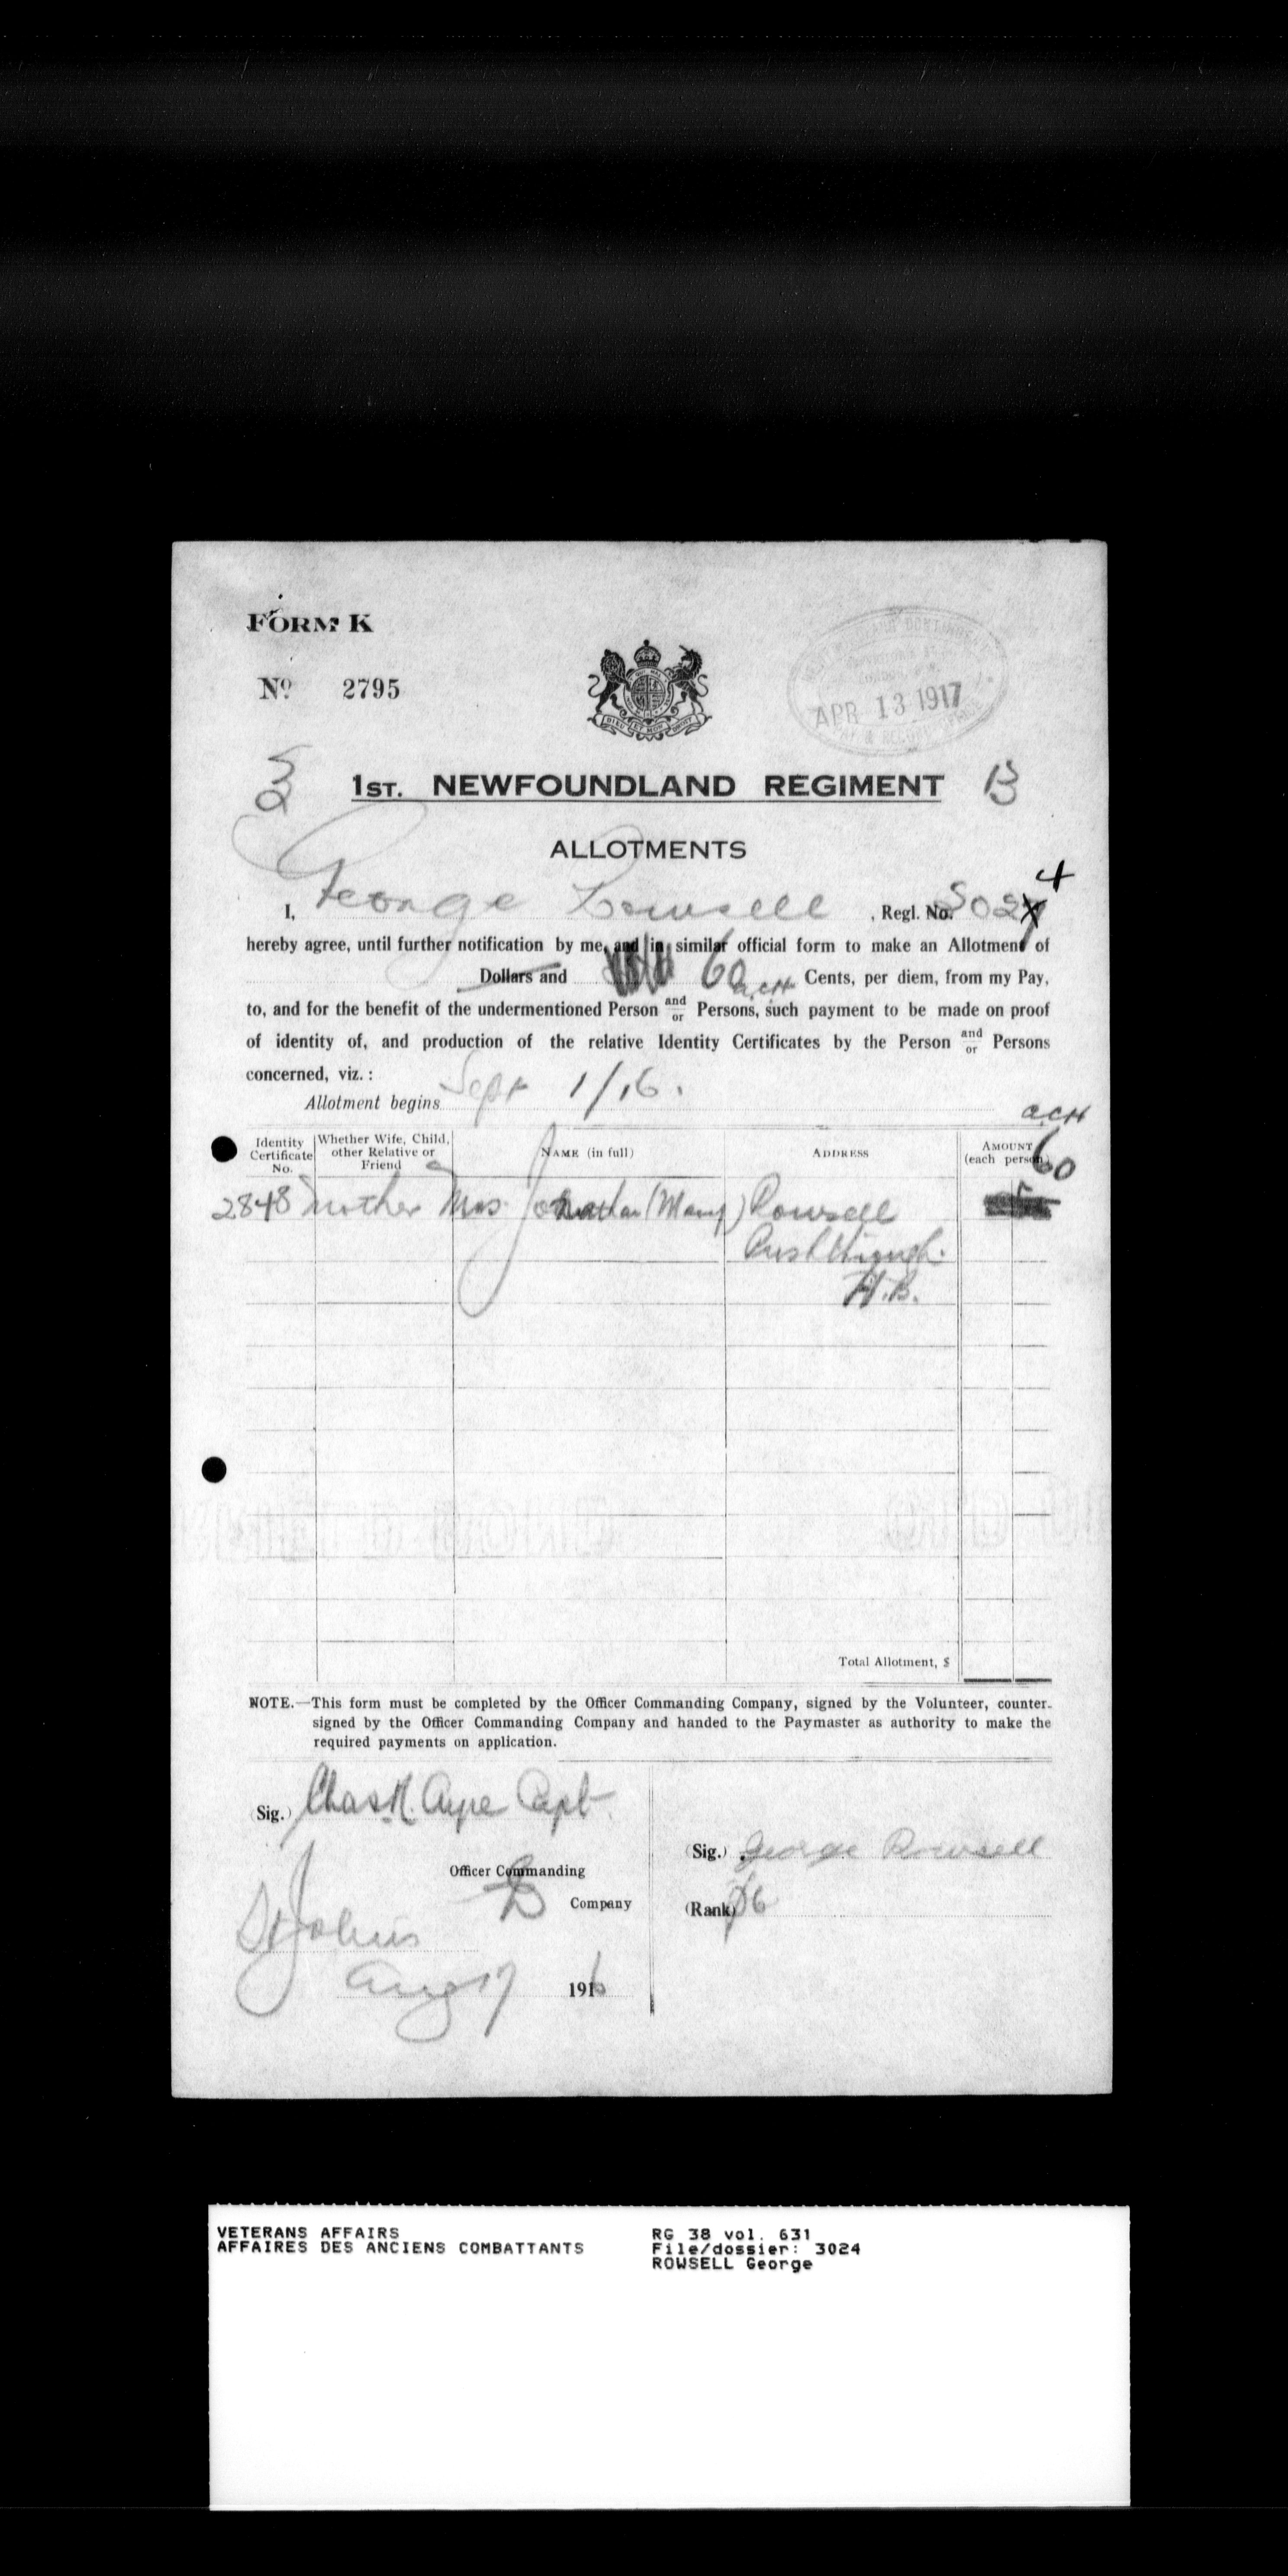 FORM K
No 2795
APR 13 1917
1ST. NEWFOUNDLAND REGIMENT B
ALLOTMENTS
I, George Rowsell, Regl. No. 3024
hereby agree, until further notification by me, and in similar official form to make an Allotment of
Dollars and 60 Cents, per diem, from my Pay,
to, and for the benefit of the undermentioned Person and/or Persons, such payment to be made on proof
of identity of, and production of the relative Identity Certificates by the Person and/or Persons
concerned, viz.:
Allotment begins Sept 1/16.
Identity Certificate No. Whether Wife, Child, other Relative or Friend NAME (in full) ADDRESS AMOUNT (each person)
2848 Mother Mrs. Jonathan (Mary) Rowsell 60
Pushthrough.
H.B.
Total Allotment, $
NOTE.—This form must be completed by the Officer Commanding Company, signed by the Volunteer, counter-
signed by the Officer Commanding Company and handed to the Paymaster as authority to make the
required payments on application.
(Sig.) Chas R. Ayre Capt
Officer Commanding
Company
St Johns
Aug 17 1916
(Sig.) George Rowsell
(Rank)
VETERANS AFFAIRS
AFFAIRES DES ANCIENS COMBATTANTS
RG 38 vol. 631
File/dossier: 3024
ROWSELL George